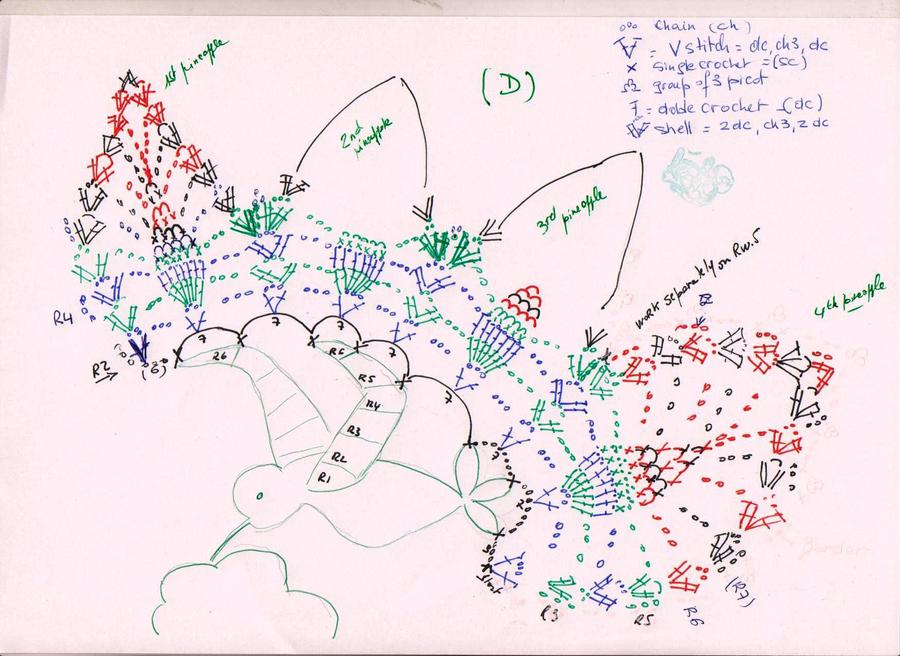 ooo chain (ch)
= V stitch = dc, ch3, dc
x single crochet = (sc)
group of 3 picot
= doble crochet = (dc)
shell = 2 dc, ch3, 2 dc
(D)
1st pineapple
2nd
pineapple
3rd pineapple
work separately on Rw.5
4th pineapple
R4
R2
(8)
7
7
7
7
7
R6
R6
R5
R4
R3
R2
R1
Start
R3
R5
R6
(R7)